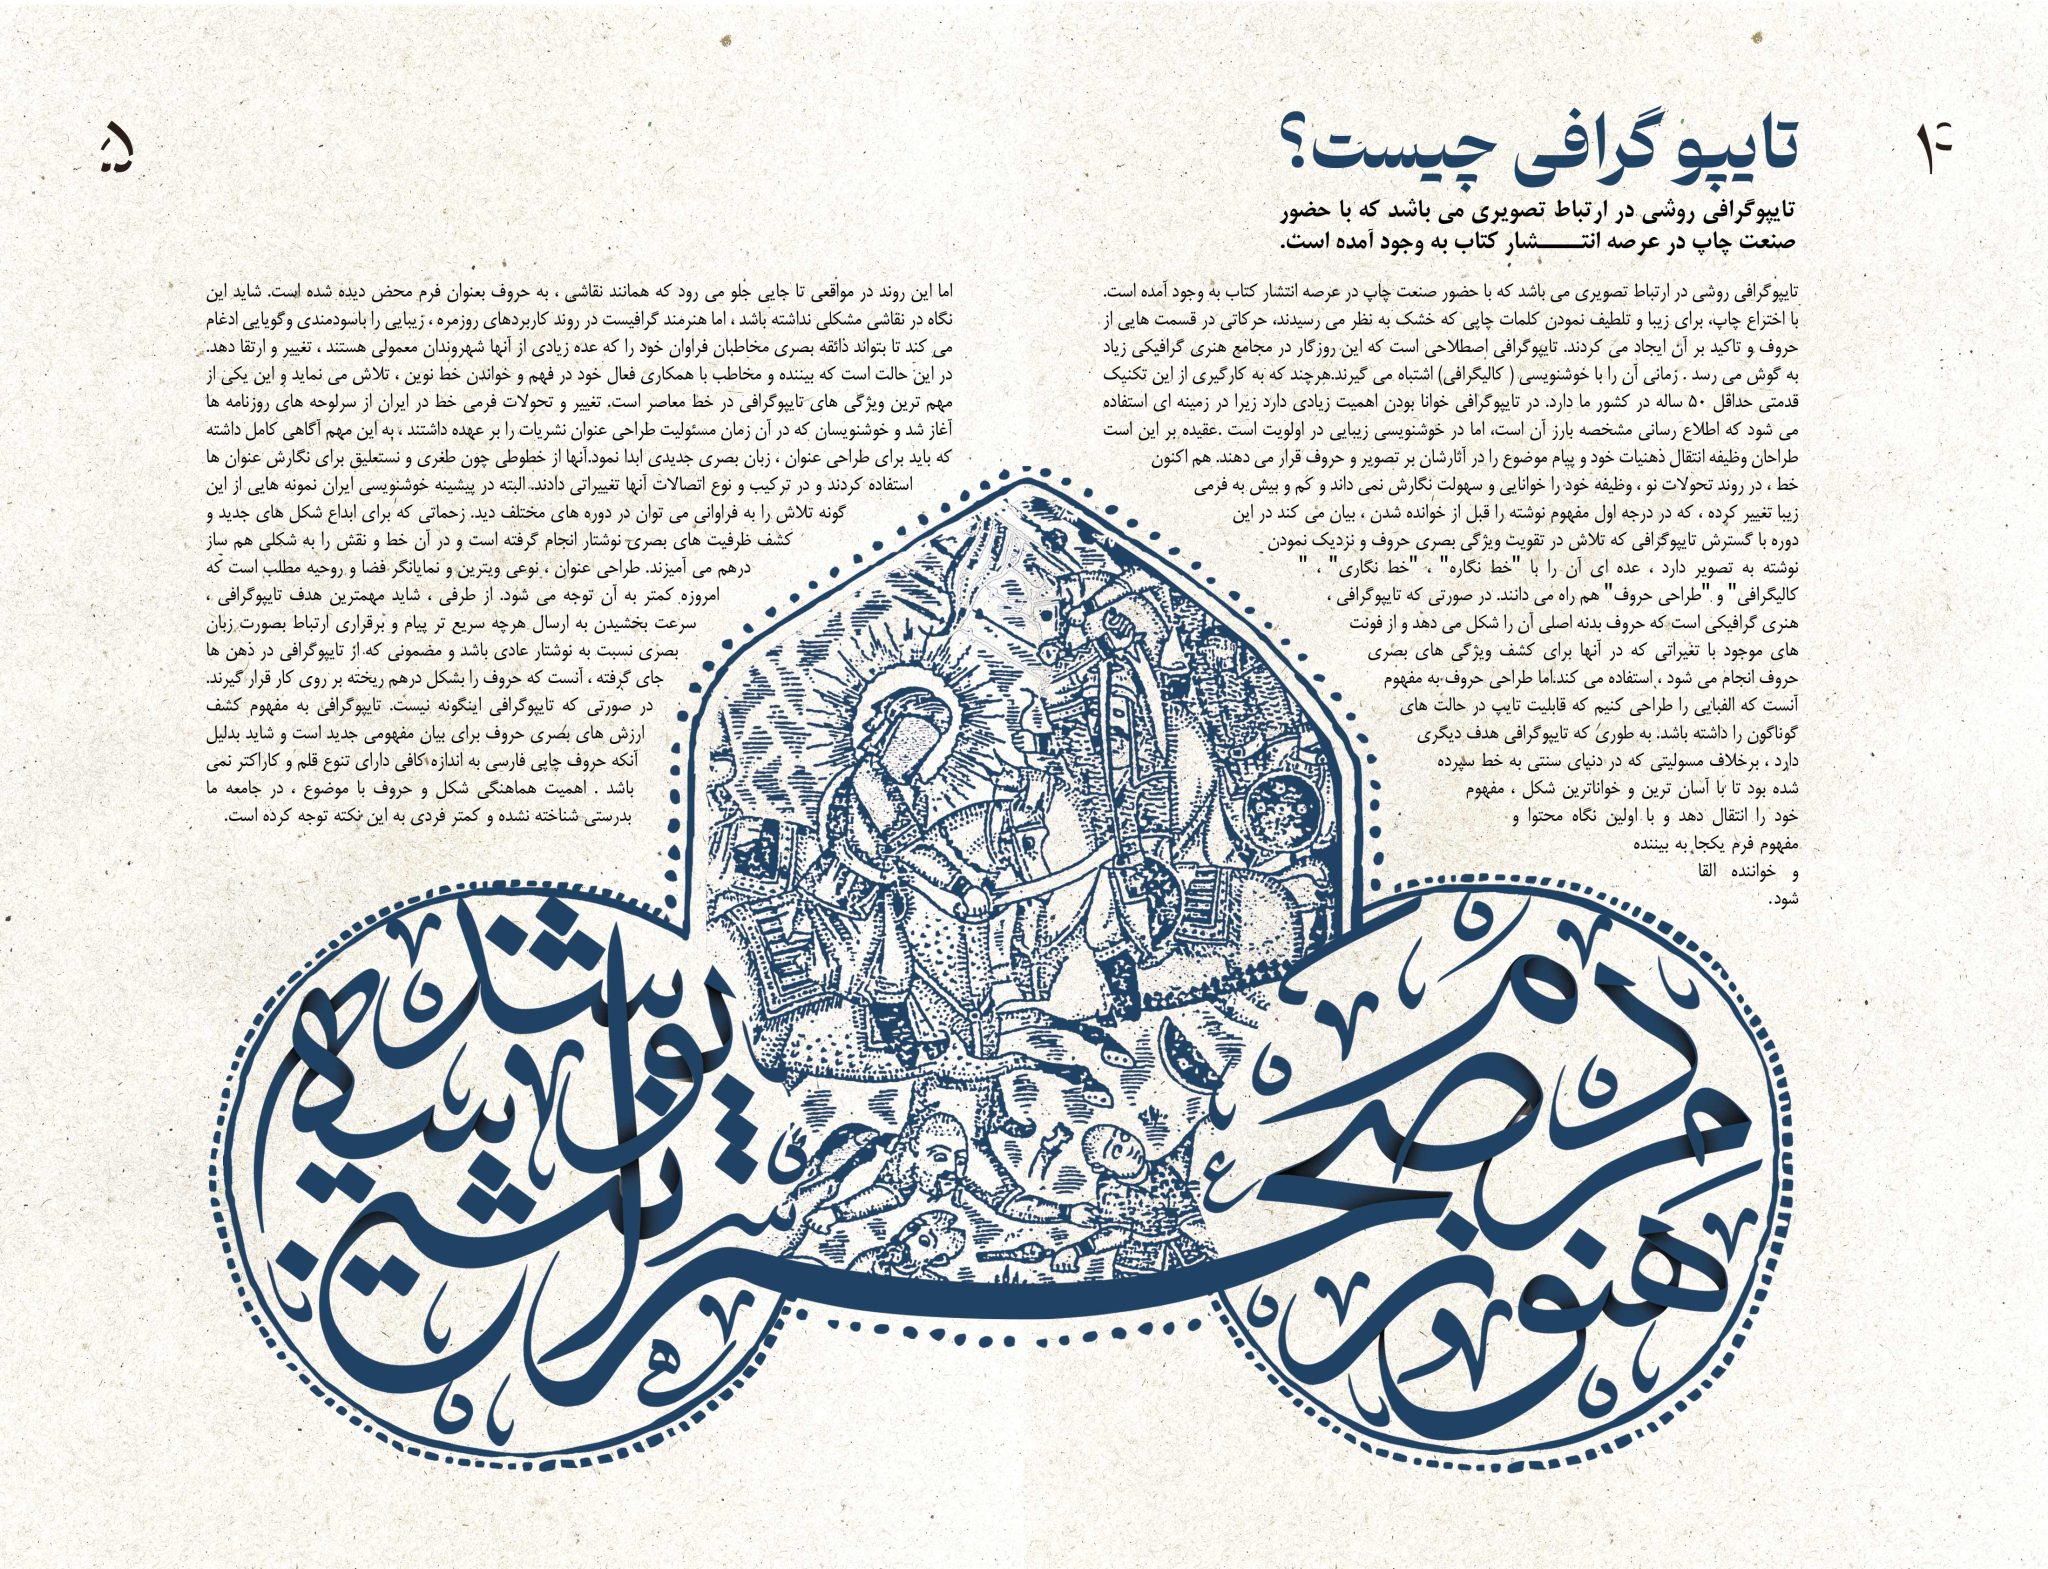 ۴
تایپو گرافی چیست؟
تایپوگرافی روشی در ارتباط تصویری می باشد که با حضور
صنعت چاپ در عرصه انتـــــــشار کتاب به وجود آمده است.
تایپوگرافی روشی در ارتباط تصویری می باشد که با حضور صنعت چاپ در عرصه انتشار کتاب به وجود آمده است.
با اختراع چاپ، برای زیبا و تلطیف نمودن کلمات چاپی که خشک به نظر می رسیدند، حرکاتی در قسمت هایی از
حروف و تاکید بر آن ایجاد می کردند. تایپوگرافی اصطلاحی است که این روزگار در مجامع هنری گرافیکی زیاد
به گوش می رسد . زمانی آن را با خوشنویسی ( کالیگرافی) اشتباه می گیرند.هرچند که به کارگیری از این تکنیک
قدمتی حداقل ۵۰ ساله در کشور ما دارد. در تایپوگرافی خوانا بودن اهمیت زیادی دارد زیرا در زمینه ای استفاده
می شود که اطلاع رسانی مشخصه بارز آن است، اما در خوشنویسی زیبایی در اولویت است .عقیده بر این است
طراحان وظیفه انتقال ذهنیات خود و پیام موضوع را در آثارشان بر تصویر و حروف قرار می دهند. هم اکنون
خط ، در روند تحولات نو ، وظیفه خود را خوانایی و سهولت نگارش نمی داند و کم و بیش به فرمی
زیبا تغییر کرده ، که در درجه اول مفهوم نوشته را قبل از خوانده شدن ، بیان می کند در این
دوره با گسترش تایپوگرافی که تلاش در تقویت ویژگی بصری حروف و نزدیک نمودن
نوشته به تصویر دارد ، عده ای آن را با "خط نگاره" ، "خط نگاری" ، "
کالیگرافی" و "طراحی حروف" هم راه می دانند. در صورتی که تایپوگرافی ،
هنری گرافیکی است که حروف بدنه اصلی آن را شکل می دهد و از فونت
های موجود با تغیراتی که در آنها برای کشف ویژگی های بصری
حروف انجام می شود ، استفاده می کند.اما طراحی حروف به مفهوم
آنست که الفبایی را طراحی کنیم که قابلیت تایپ در حالت های
گوناگون را داشته باشد. به طوری که تایپوگرافی هدف دیگری
دارد ، برخلاف مسولیتی که در دنیای سنتی به خط سپرده
شده بود تا با آسان ترین و خواناترین شکل ، مفهوم
خود را انتقال دهد و با اولین نگاه محتوا و
مفهوم فرم یکجا به بیننده
و خواننده القا
شود.
۵
اما این روند در مواقعی تا جایی جلو می رود که همانند نقاشی ، به حروف بعنوان فرم محض دیده شده است. شاید این
نگاه در نقاشی مشکلی نداشته باشد ، اما هنرمند گرافیست در روند کاربردهای روزمره ، زیبایی را باسودمندی وگویایی ادغام
می کند تا بتواند ذائقه بصری مخاطبان فراوان خود را که عده زیادی از آنها شهروندان معمولی هستند ، تغییر و ارتقا دهد.
در این حالت است که بیننده و مخاطب با همکاری فعال خود در فهم و خواندن خط نوین ، تلاش می نماید و این یکی از
مهم ترین ویژگی های تایپوگرافی در خط معاصر است. تغییر و تحولات فرمی خط در ایران از سرلوحه های روزنامه ها
آغاز شد و خوشنویسان که در آن زمان مسئولیت طراحی عنوان نشریات را بر عهده داشتند ، به این مهم آگاهی کامل داشته
که باید برای طراحی عنوان ، زبان بصری جدیدی ابدا نمود.آنها از خطوطی چون طغری و نستعلیق برای نگارش عنوان ها
استفاده کردند و در ترکیب و نوع اتصالات آنها تغییراتی دادند. البته در پیشینه خوشنویسی ایران نمونه هایی از این
گونه تلاش را به فراوانی می توان در دوره های مختلف دید. زحماتی که برای ابداع شکل های جدید و
کشف ظرفیت های بصری نوشتار انجام گرفته است و در آن خط و نقش را به شکلی هم ساز
درهم می آمیزند. طراحی عنوان ، نوعی ویترین و نمایانگر فضا و روحیه مطلب است که
امروزه کمتر به آن توجه می شود. از طرفی ، شاید مهمترین هدف تایپوگرافی ،
سرعت بخشیدن به ارسال هرچه سریع تر پیام و برقراری ارتباط بصورت زبان
بصری نسبت به نوشتار عادی باشد و مضمونی که از تایپوگرافی در ذهن ها
جای گرفته ، آنست که حروف را بشکل درهم ریخته بر روی کار قرار گیرند.
در صورتی که تایپوگرافی اینگونه نیست. تایپوگرافی به مفهوم کشف
ارزش های بصری حروف برای بیان مفهومی جدید است و شاید بدلیل
آنکه حروف چاپی فارسی به اندازه کافی دارای تنوع قلم و کاراکتر نمی
باشد . اهمیت هماهنگی شکل و حروف با موضوع ، در جامعه ما
بدرستی شناخته نشده و کمتر فردی به این نکته توجه کرده است.
هنوز